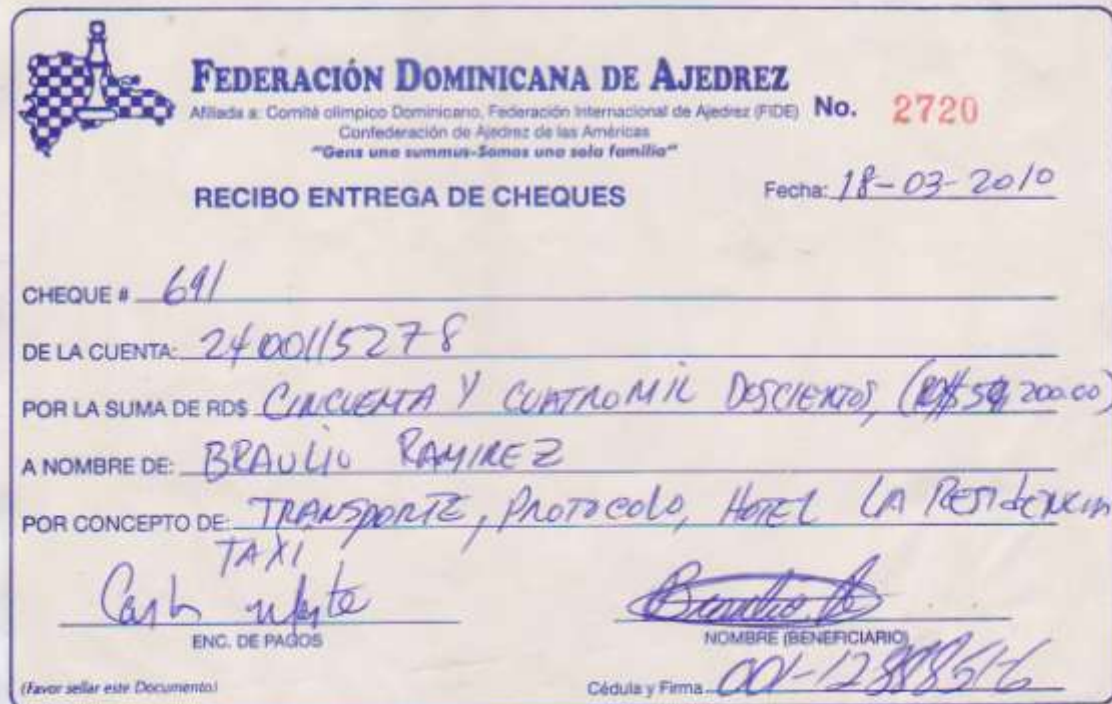 FEDERACIÓN DOMINICANA DE AJEDREZ
Afiliada a: Comité olímpico Dominicano, Federación Internacional de Ajedrez (FIDE) No. 2720
Confederación de Ajedrez de las Américas
"Gens una summus-Somos una sola familia"
RECIBO ENTREGA DE CHEQUES
Fecha: 18-03-2010
CHEQUE # 691
DE LA CUENTA: 2400115278
POR LA SUMA DE RD$ CINCUENTA Y CUATRO MIL DOSCIENTOS, (RD$54,200.00)
A NOMBRE DE: BRAULIO RAMIREZ
POR CONCEPTO DE: TRANSPORTE, PROTOCOLO, HOTEL LA RESIDENCIA
TAXI
ENC. DE PAGOS
NOMBRE (BENEFICIARIO)
(Favor sellar este Documento)
Cédula y Firma